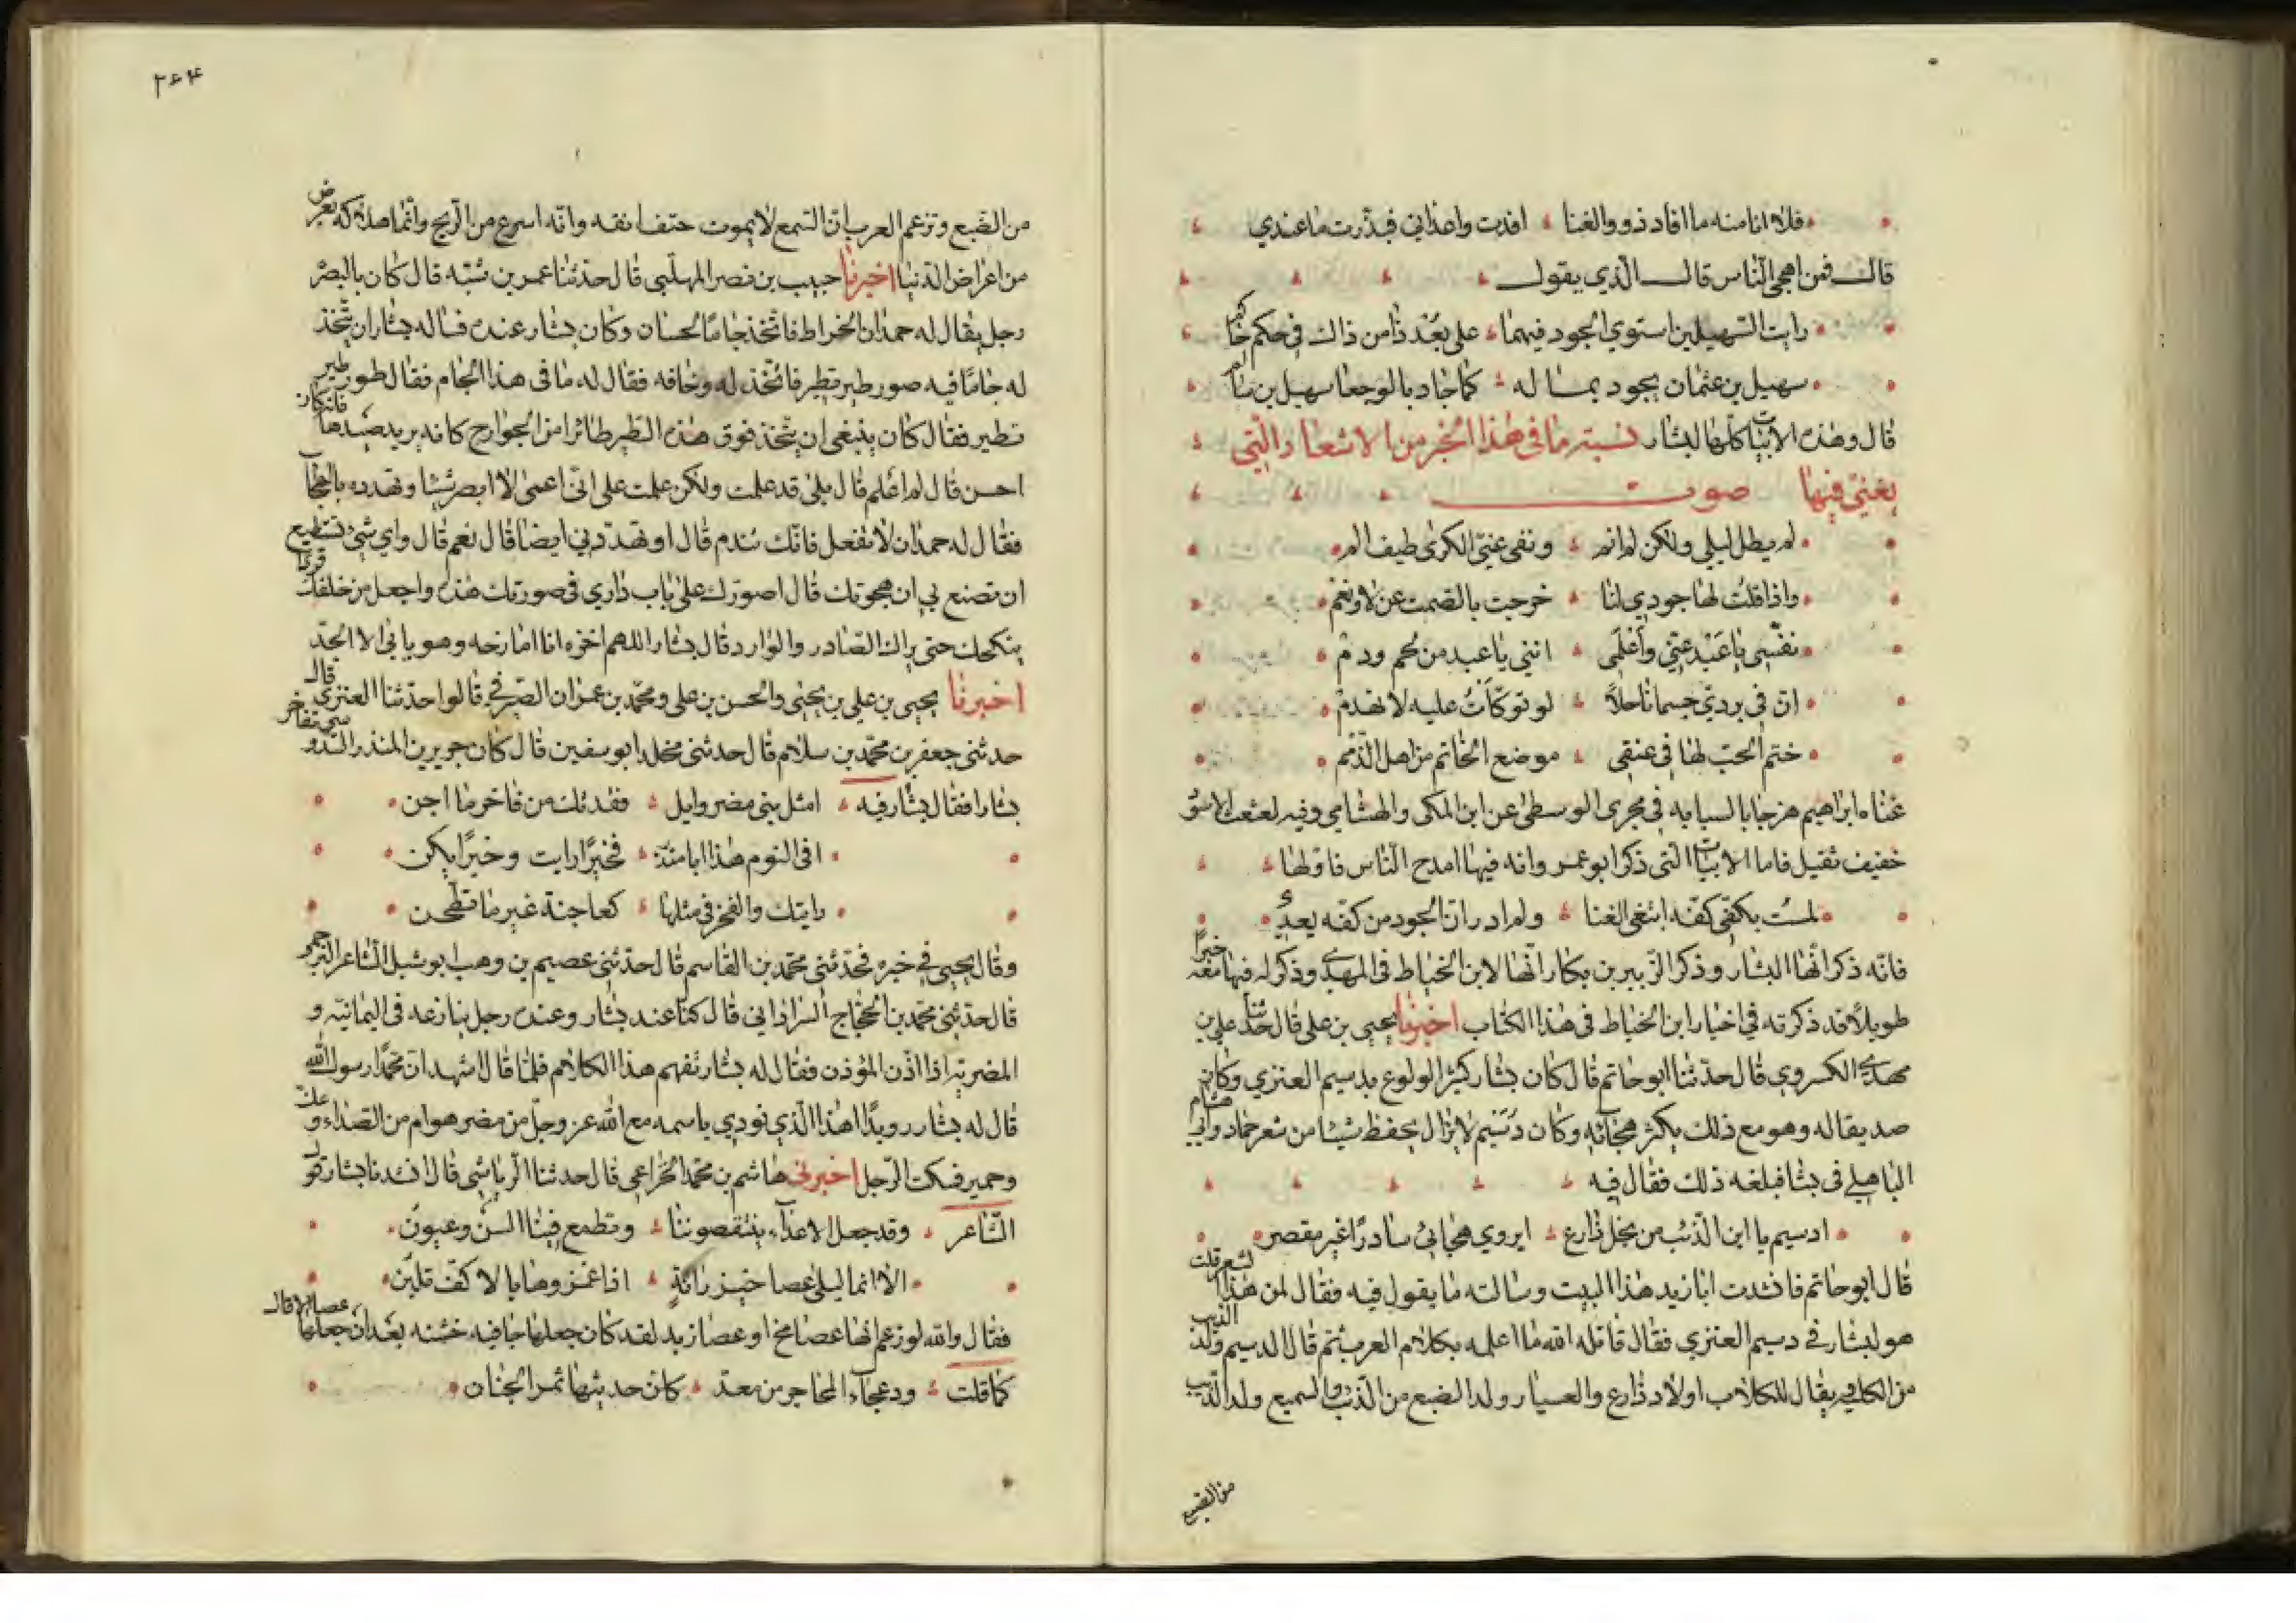 فلا انا منه ما افاد ذوو الغنا افدت واعداني فبذرت ما عندي
قال فمن اهجى الناس قال الذي يقول
رايت السهيلين استوي الجود فيهما على بعد ذا من ذاك في حكم حاكم
سهيل بن عثمان يجود بماله كما جاد بالوجعا سهيل بن سالم
قال وهذه الابيات كلها لبشار نسبة ما في هذا الخبر من الاشعار التي
يغني فيها صوت
لم يطل ليلي ولكن لم انم ونفى عني الكرى طيف الم
واذا قلت لها جودي لنا خرجت بالصمت عن لا ونعم
نفسي يا عبد عني واعلمي انني يا عبد من لحم ودم
ان في بردي جسما ناحلا لو توكات عليه لانهدم
ختم الحب لها في عنقي موضع الخاتم من اهل الذمم
غناه ابراهيم هزجا بالسبابه في مجرى الوسطى عن ابن المكي والهشامي وفيه لعثعث الاسود
خفيف ثقيل فاما الابيات التي ذكر ابو عمر وانه فيها امدح الناس فاولها
لمست بكفي كفه ابتغي الغنا ولم ادر ان الجود من كفه يعدي
فانه ذكر انها لبشار وذكر الزبير بن بكار انها لابن الخياط في المهدي وذكر له فيها معه خبرا
طويلا قد ذكرته في اخبار ابن الخياط في هذا الكتاب اخبرنا يحيى بن علي قال حدثنا علي بن
مهدي الكسروي قال حدثنا ابو حاتم قال كان بشار كثير الولوع بديسم العنزي وكان
صديقا له وهو مع ذلك يكثر هجائه وكان دسيم لا يزال يحفظ شيئا من شعر حماد وابي هشام
الباهلي في بشا فبلغه ذلك فقال فيه
ادسيم يا ابن الذئب من نجل ذارع ايروي هجائي سادرا غير مقصر
قال ابو حاتم فانشدت ابا زيد هذا البيت وسالته ما يقول فيه فقال لمن هذا الشعر قلت
هو لبشار في دسيم العنزي فقال قاتله الله ما اعلمه بكلام العرب ثم قال الدسيم ولد الذيب
من الكلبه يقال للكلاب اولاد ذارع والعسبار ولد الضبع من الذئب والسميع ولد الذيب
من الضبع
٢٦٤
من الضبع وتزعم العرب ان السمع لا يموت حتف انفه وانه اسرع من الريح وانما هلاكه بعرض
من اعراض الدنيا اخبرنا حبيب بن نصر المهلبي قال حدثنا عمر بن شبه قال كان بالبصرة
رجل يقال له حمدان الخراط فاتخذ جاما لانسان وكان بشار عنده فساله بشار ان يتخذ
له جاما فيه صور طير تطير فاتخذ له وجاءه به فقال له ما في هذا الجام فقال طور طير
تطير فقال كان ينبغي ان يتخذ فوق هذه الطير طائرا من الجوارح كانه يريد صيدها فانه كان
احسن قال لم اعلم قال بلى قد علمت ولكن علمت على اني اعمى لا ابصر شيئا وتهدده بالهجا
فقال له حمدان لا تفعل فانك تندم قال او تهددني ايضا قال نعم قال واي شئ تستطيع
ان تصنع بي ان هجوتك قال اصورك على باب داري في صورتك هذه واجعل من خلفك قردا
ينكحك حتى يراك الصادر والوارد قال بشار اللهم اخزه انا امازحه وهو يابى الا الجد
اخبرنا يحيى بن علي بن يحيى والحسن بن علي ومحمد بن عمران الصيرفي قالوا حدثنا العنزي قال
حدثني جعفر بن محمد بن سلام قال حدثني مخلد ابو سفين قال كان جرير بن المنذر السدوسي تفاخر
بشارا فقال بشار فيه امثل بني مضر وايل فقدتك من فاخر ما اجن
افي النوم هذا ابا منذر فخيرا رايت وخيرا يكن
رايتك والفخر في مثلها كعاجنة غير ما تطحن
وقال يحيى في خبره فحدثني محمد بن القاسم قال حدثني عصيم بن وهب ابو شبل الشاعر البرجمي
قال حدثني محمد بن الحجاج السراداني قال كنا عند بشار وعنده رجل ينازعه في اليمانيه و
المضريه اذا اذن المؤذن فقال له بشار تفهم هذا الكلام فلما قال اشهد ان محمدا رسول الله
قال له بشار رويدا اهذا الذي نودي باسمه مع الله عز وجل من مضر هو ام من الصداء و عك
وحمير فسكت الرجل اخبرني هاشم بن محمد الخزاعي قال حدثنا الرياشي قال انشدنا بشار قول
الشاعر وقد جعل الاعداء ينتقصوننا وتطمع فينا السن وعيون
الا انما ليلى عصا خيزرانة اذا غمزوها بالاكف تلين
فقال والله لو زعم انها عصا مخ او عصا زبد لقد كان جعلها جافيه خشنه بعد ان جعلها عصا الا قال
كما قلت ودعجاء المحاجر من معد كان حديثها ثمر الجنان